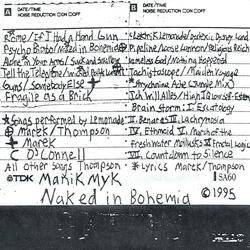 A DATE/TIME
NOISE REDUCTION □ON □OFF
Rome/If I Had a Hand Gun
Psycho Bimbo/Naked in Bohemia
Alone in Your Arms/Suck and Smile
Tell the Telephone/
Guns/Somebody Else
Fragile as a Brick
*Songs performed by Lemonade
Marek/Thompson
Marek
O'Connell
All other songs Thompson
B DATE/TIME
NOISE REDUCTION □ON □OFF
Lemonade/Dyslexic Disney Land
Pipeline/Loose Cannon/Religious Reich
Homeless God/Nothing Happened
Tachistoscope/Maiden Voyage
Strychnine Acid (Jungle Mix)
Ida Will Alles/High IQ Low Self-Esteem
Brain Storm: I. Escatology
II. Benares III. Lachrymosia
IV. Ethmoid V. March of the
Freshwater Mollusks VI. Fractal Logic
VII. Countdown to Silence
*Lyrics Marek/Thompson
TDK
MAKIKMYK
SA60
Naked in Bohemia
©1995